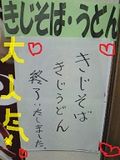 きじそば・うどん
大人気
きじそば
きじうどん
終了いたしました。